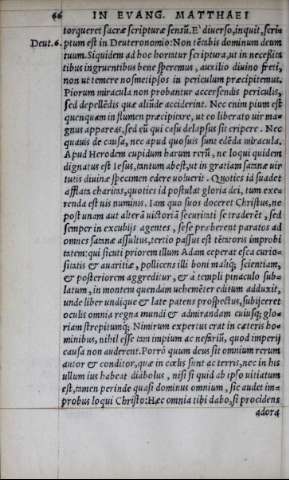 66 IN EVANG. MATTHAEI
torqueret sacræ scripturæ sensũ. E' diuerso, inquit, scri
Deut. 6. ptum est in Deuteronomio: Non tẽtabis dominum deum
tuum. Siquidem ad hoc hortatur scriptura, ut in necessita
tibus ingruentibus bene speremus, auxilio diuino freti,
non ut temere nosmetipsos in periculum præcipitemus.
Piorum miracula non probantur accersendis periculis,
sed depellẽdis quæ aliũde acciderint. Nec enim pium est
quenquam in flumen præcipitare, ut eo liberato uir ma-
gnus appareas, sed eũ qui casu delapsus sit eripere. Nec
quauis de causa, nec apud quosuis sunt edẽda miracula.
Apud Herodem cupidum harum rerũ, ne loqui quidem
dignatus est Iesus, tantum abest, ut in gratiam sannæ uir
tutis diuinæ specimen edere uoluerit. Quoties id suadet
afflatæ charitas, quoties id postulat gloria dei, tum exe-
renda est uis numinis. Iam quo suos doceret Christus, ne
post unam aut alterã uictoriã securitati se traderẽt, sed
semper in excubijs agentes, sese præberent paratos ad
omnes satanæ assultus, tertio passus est tẽtatoris improbi
tatem: qui sicuti priorem illum Adam ceperat esca curio-
sitatis & auaritiæ, pollicens illi boni maliq; scientiam,
& posteriorem aggreditur, & à templi pinaculo sub-
latum, in montem quendam uchemẽter editum adduxit,
unde liber undique & late patens prospectus, subijceret
oculis omnia regna mundi & admirandam cuiusq; glo-
riam strepitumq;. Nimirum expertus erat in cæteris ho-
minibus, nihil esse tam impium ac nefariũ, quod imperij
causa non auderent. Porrò quum deus sit omnium rerum
autor & conditor, quæ in cœlis sunt ac terris, nec in his
ullum ius habeat diabolus, nisi si quid ab ipso uitiatum
est, tamen perinde quasi dominus omnium, sic audet im-
probus loqui Christo: Hæc omnia tibi dabo, si procidens
adora